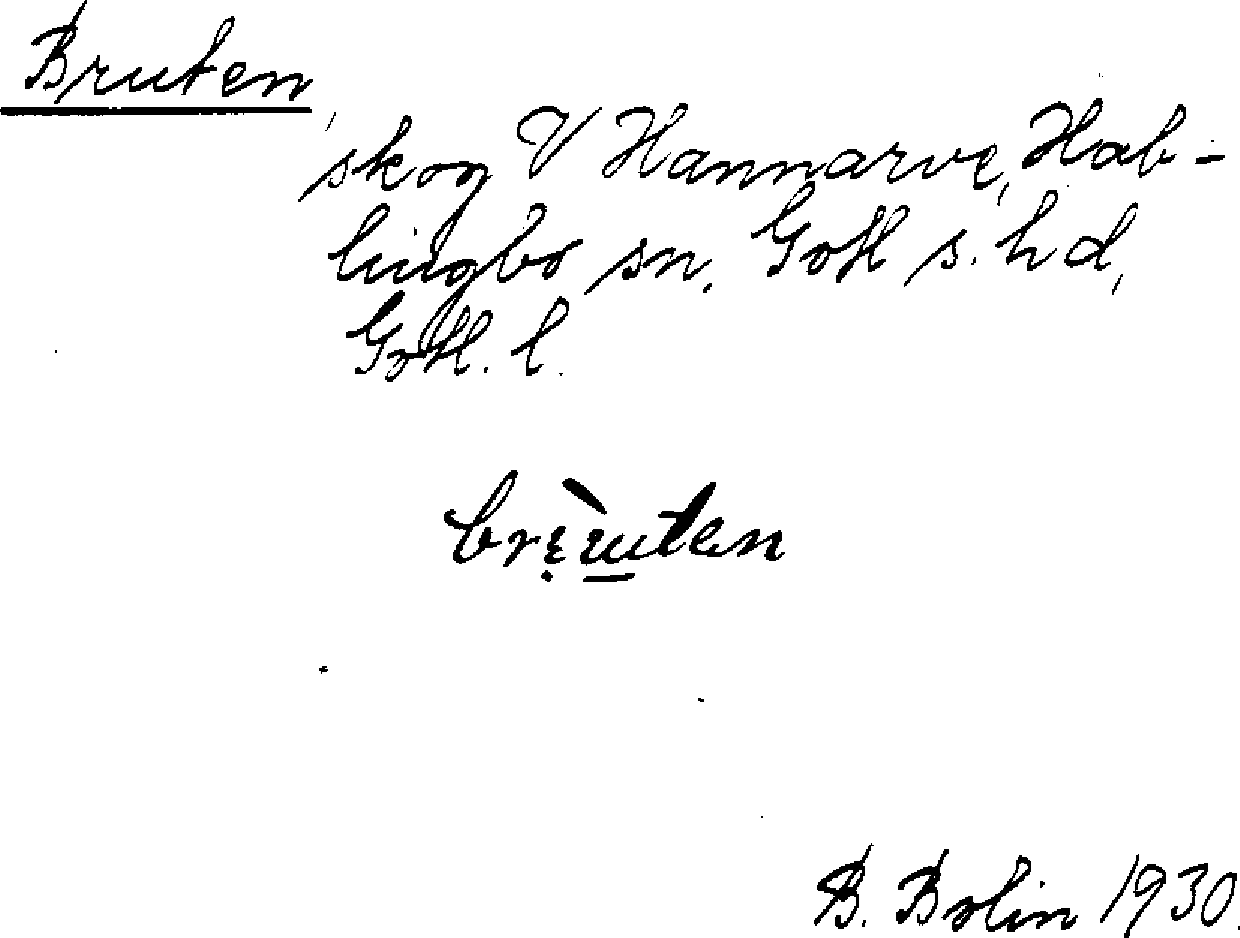 Bruten,
skog V Hannarve, Hab-
lingbo sn. Gotl s. hd,
Gotl. l.
B. Bolin 1930.